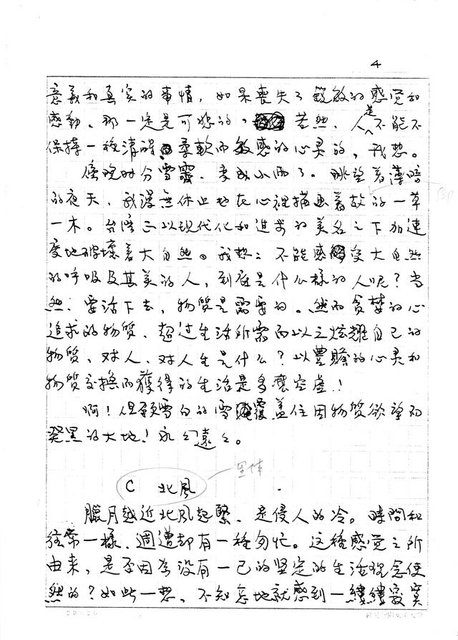 4
意義和真实的事情,如果喪失了銳敏的感覚和
感動,那一定是可悲的。当然,人是不能不
保持一種清醒、柔軟而敏感的心灵的,我想。
傍晚時分雪霽,变成小雨了。眺望着薄暗
的夜天,我漫無休止地在心裡描画着故 的一草
一木。台湾正以現代化和進步的美名之下加速
度地破壞着大自然。我想:不能感受大自然
的呼吸及其美的人,到底是什么樣的人呢?当
然,要活下去,物質是需要的。然而貪婪的心
追求的物質,超过生活所需而以之炫耀自己的
物質,対人、対人生是什么?以豊饒的心灵和
物質交換而獲得的生活是多麼空虛!
啊!但願雪白的雪覆盖住因物質欲望而
発黑的大地!永永遠遠。
黑体
C 北風
臘月越近北風越緊,是侵人的冷。時間和
往常一樣,週遭却有一種匆忙。这種感覚之所
由来,是否因為没有一己的坚定的生活观念使
然的?如此一想,不知怎地就感到一縷縷寂寞